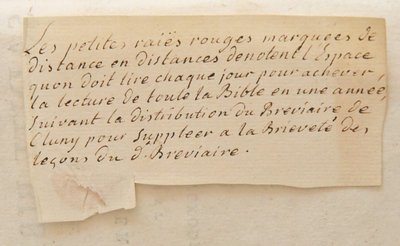 Les petites raiës rouges marquees de
distance en distances denotent l'Espace
quon doit lire chaque jour pour achever,
la lecture de toute la Bible en une année,
suivant la distribution du Breviaire de
Cluny pour suppleer a la Brieveté des
leçons du d. Breviaire.